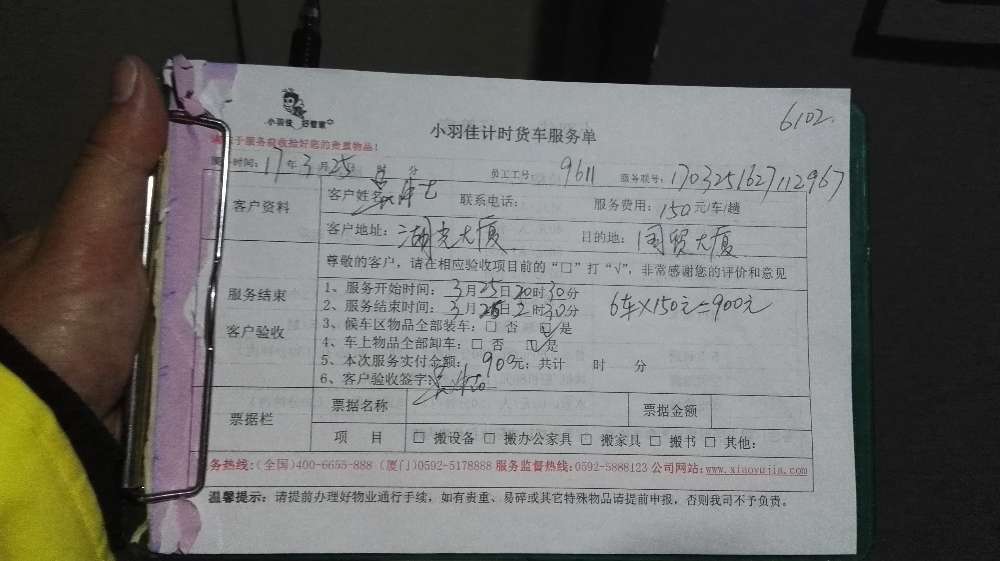 小羽佳 好管家
6102
小羽佳计时货车服务单
于服务前收拾好您的贵重物品！
时间：17年3月25日 时 分 员工工号：9611 服务联号：1703251627112967
客户资料
客户姓名： 联系电话： 服务费用：150元/车/趟
客户地址：湖光大厦 目的地：国贸大厦
服务结束
客户验收
尊敬的客户，请在相应验收项目前的“□”打“√”，非常感谢您的评价和意见
1、服务开始时间：3月25日20时30分
2、服务结束时间：3月26日2时30分
6车×150元=900元
3、候车区物品全部装车：□ 否 □ 是
4、车上物品全部卸车：□ 否 □ 是
5、本次服务实付金额：900元；共计 时 分
6、客户验收签字：
票据栏
票据名称 票据金额
项 目 □ 搬设备 □ 搬办公家具 □ 搬家具 □ 搬书 □ 其他：
务热线:(全国)400-6655-888 (厦门)0592-5178888 服务监督热线:0592-5888123 公司网站:www.xiaoyujia.com
温馨提示：请提前办理好物业通行手续，如有贵重、易碎或其它特殊物品请提前申报，否则我司不予负责。